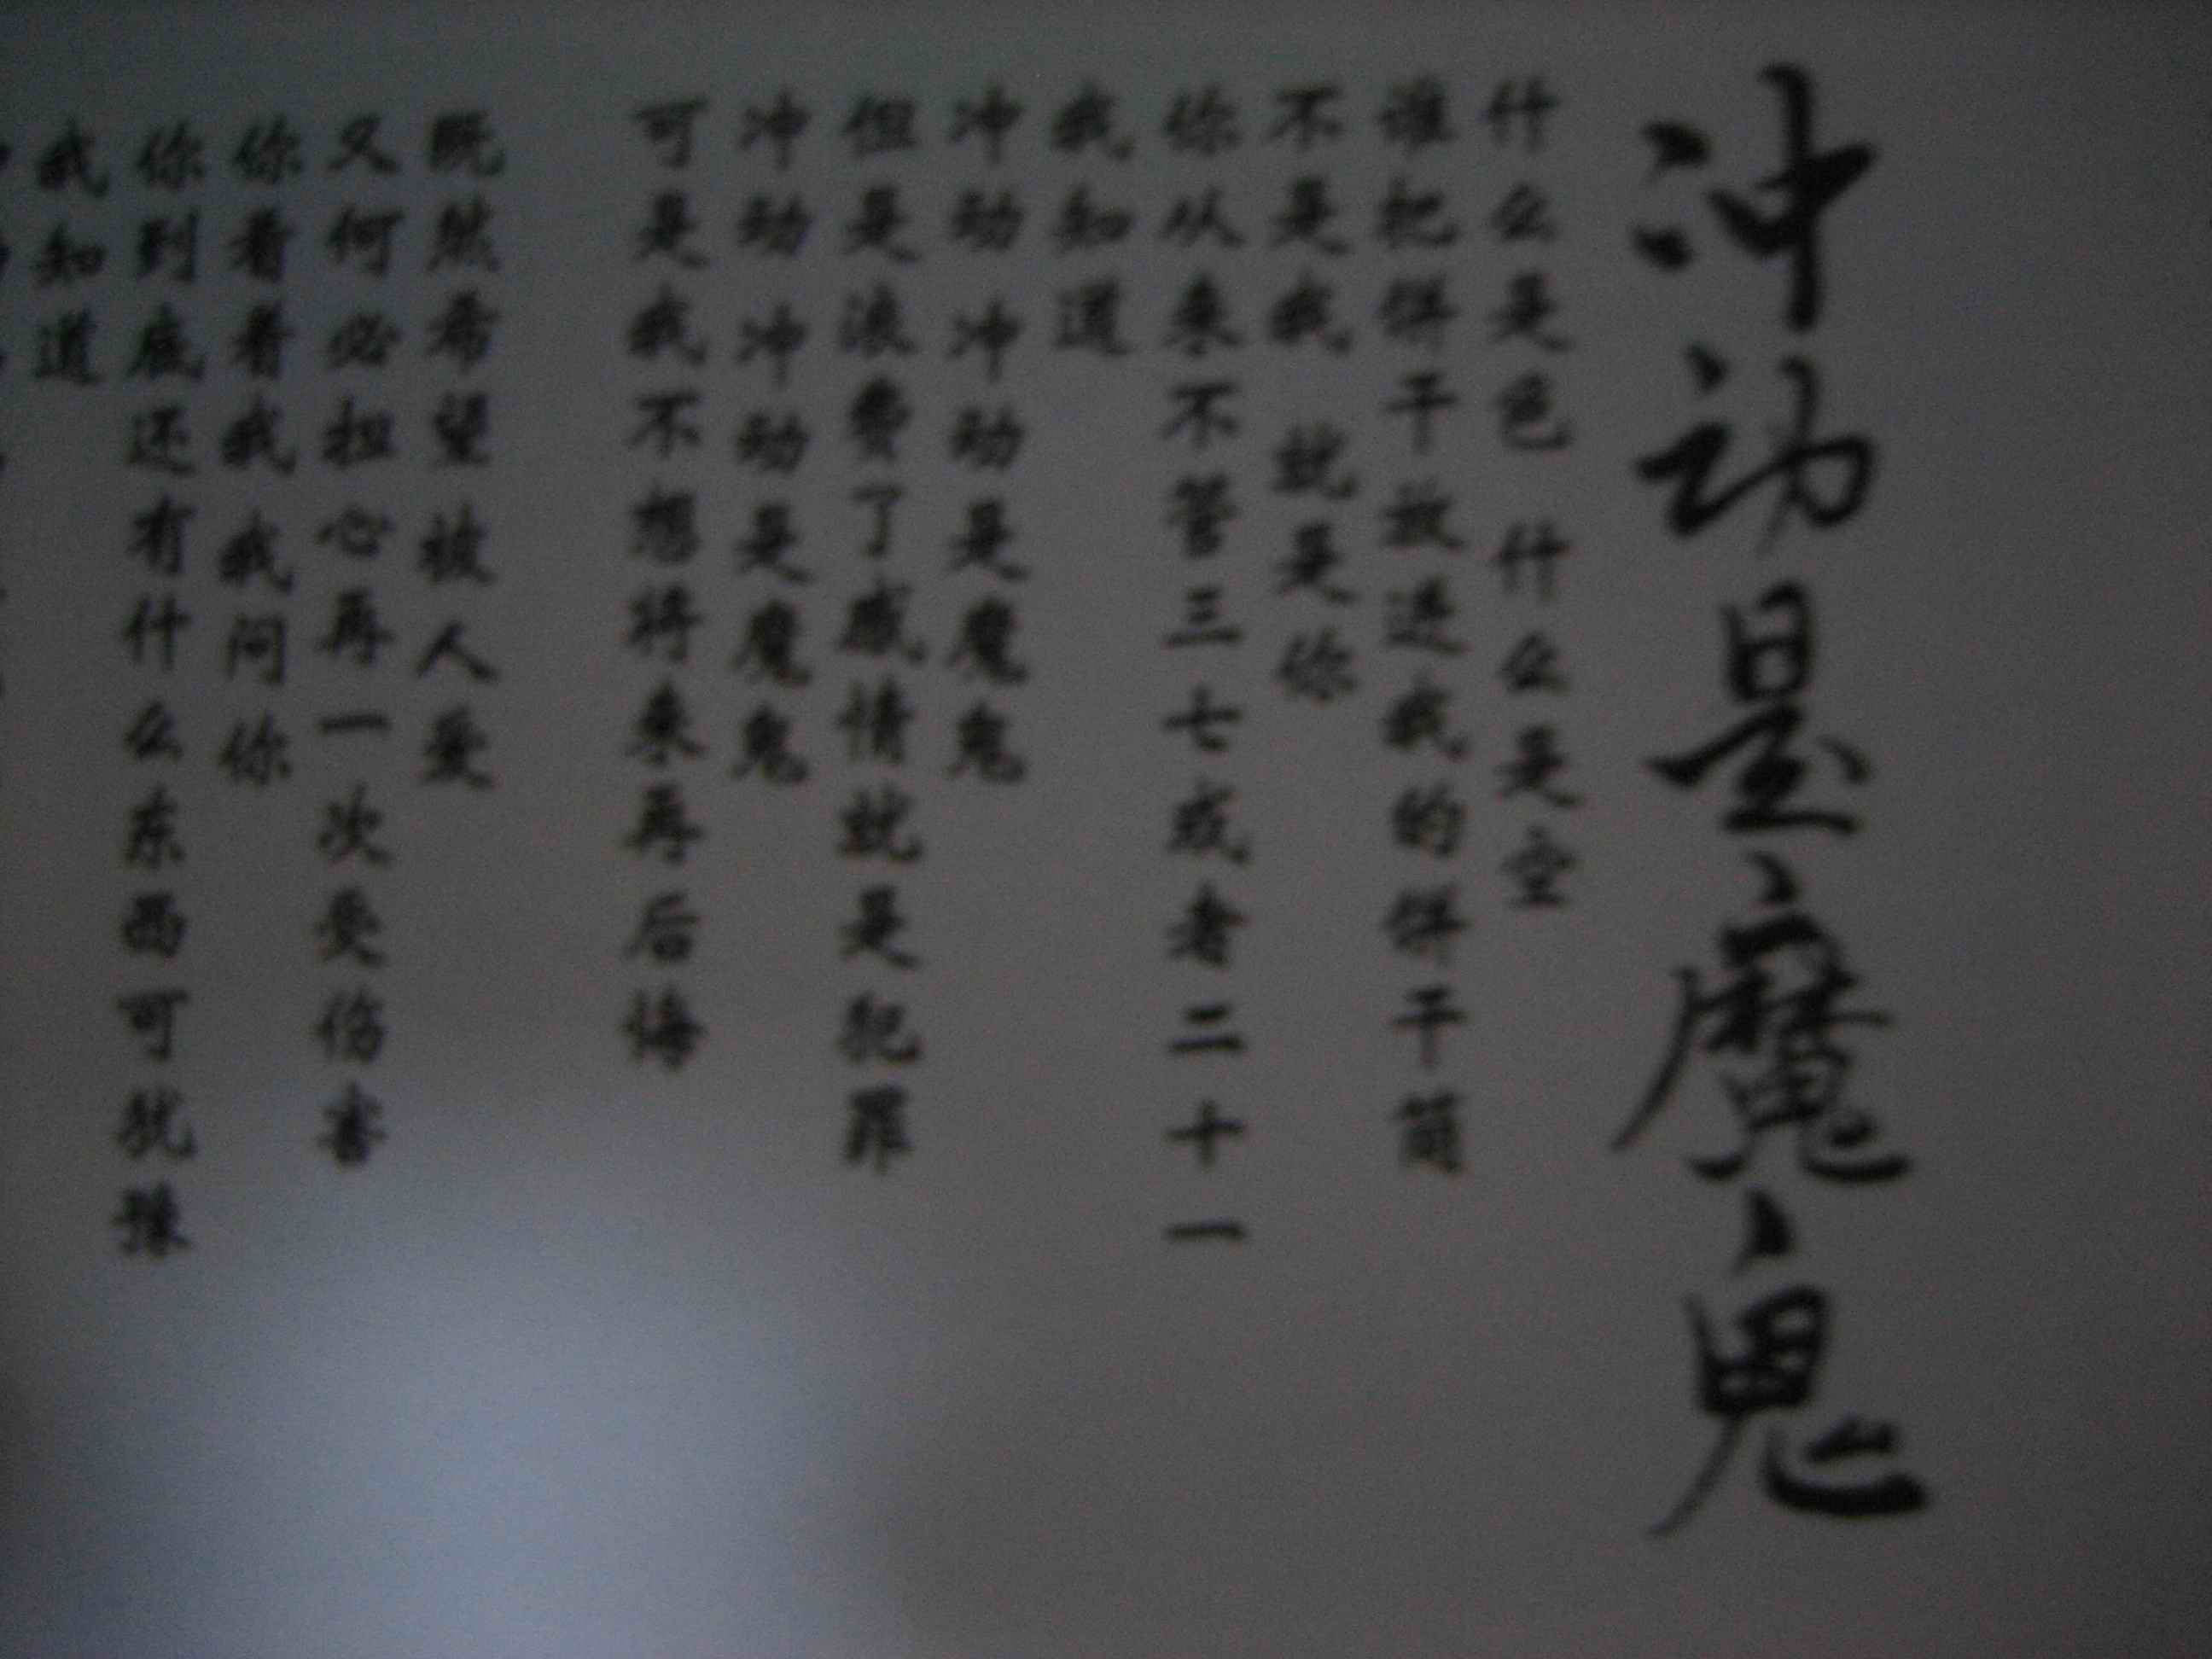 冲动是魔鬼
什么是色 什么是空
谁把饼干放进我的饼干筒
不是我 就是你
你从来不管三七或者二十一
我知道
冲动 冲动是魔鬼
但是浪费了感情就是犯罪
冲动 冲动是魔鬼
可是我不想将来再后悔
既然希望被人爱
又何必担心再一次受伤害
你看着我 我问你
你到底还有什么东西可犹豫
我知道